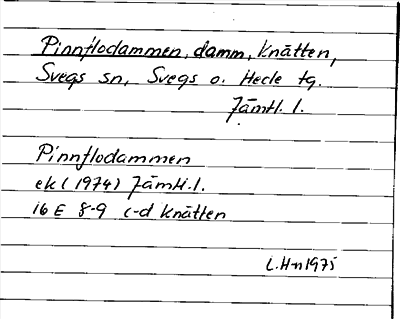 Pinnflodammen, damm, Knätten,
Svegs sn, Svegs o. Hede tg.
Jämtl. l.
Pinnflodammen
ek (1974) Jämtl. l.
16 E 8-9 c-d Knätten
L.H-n 1975